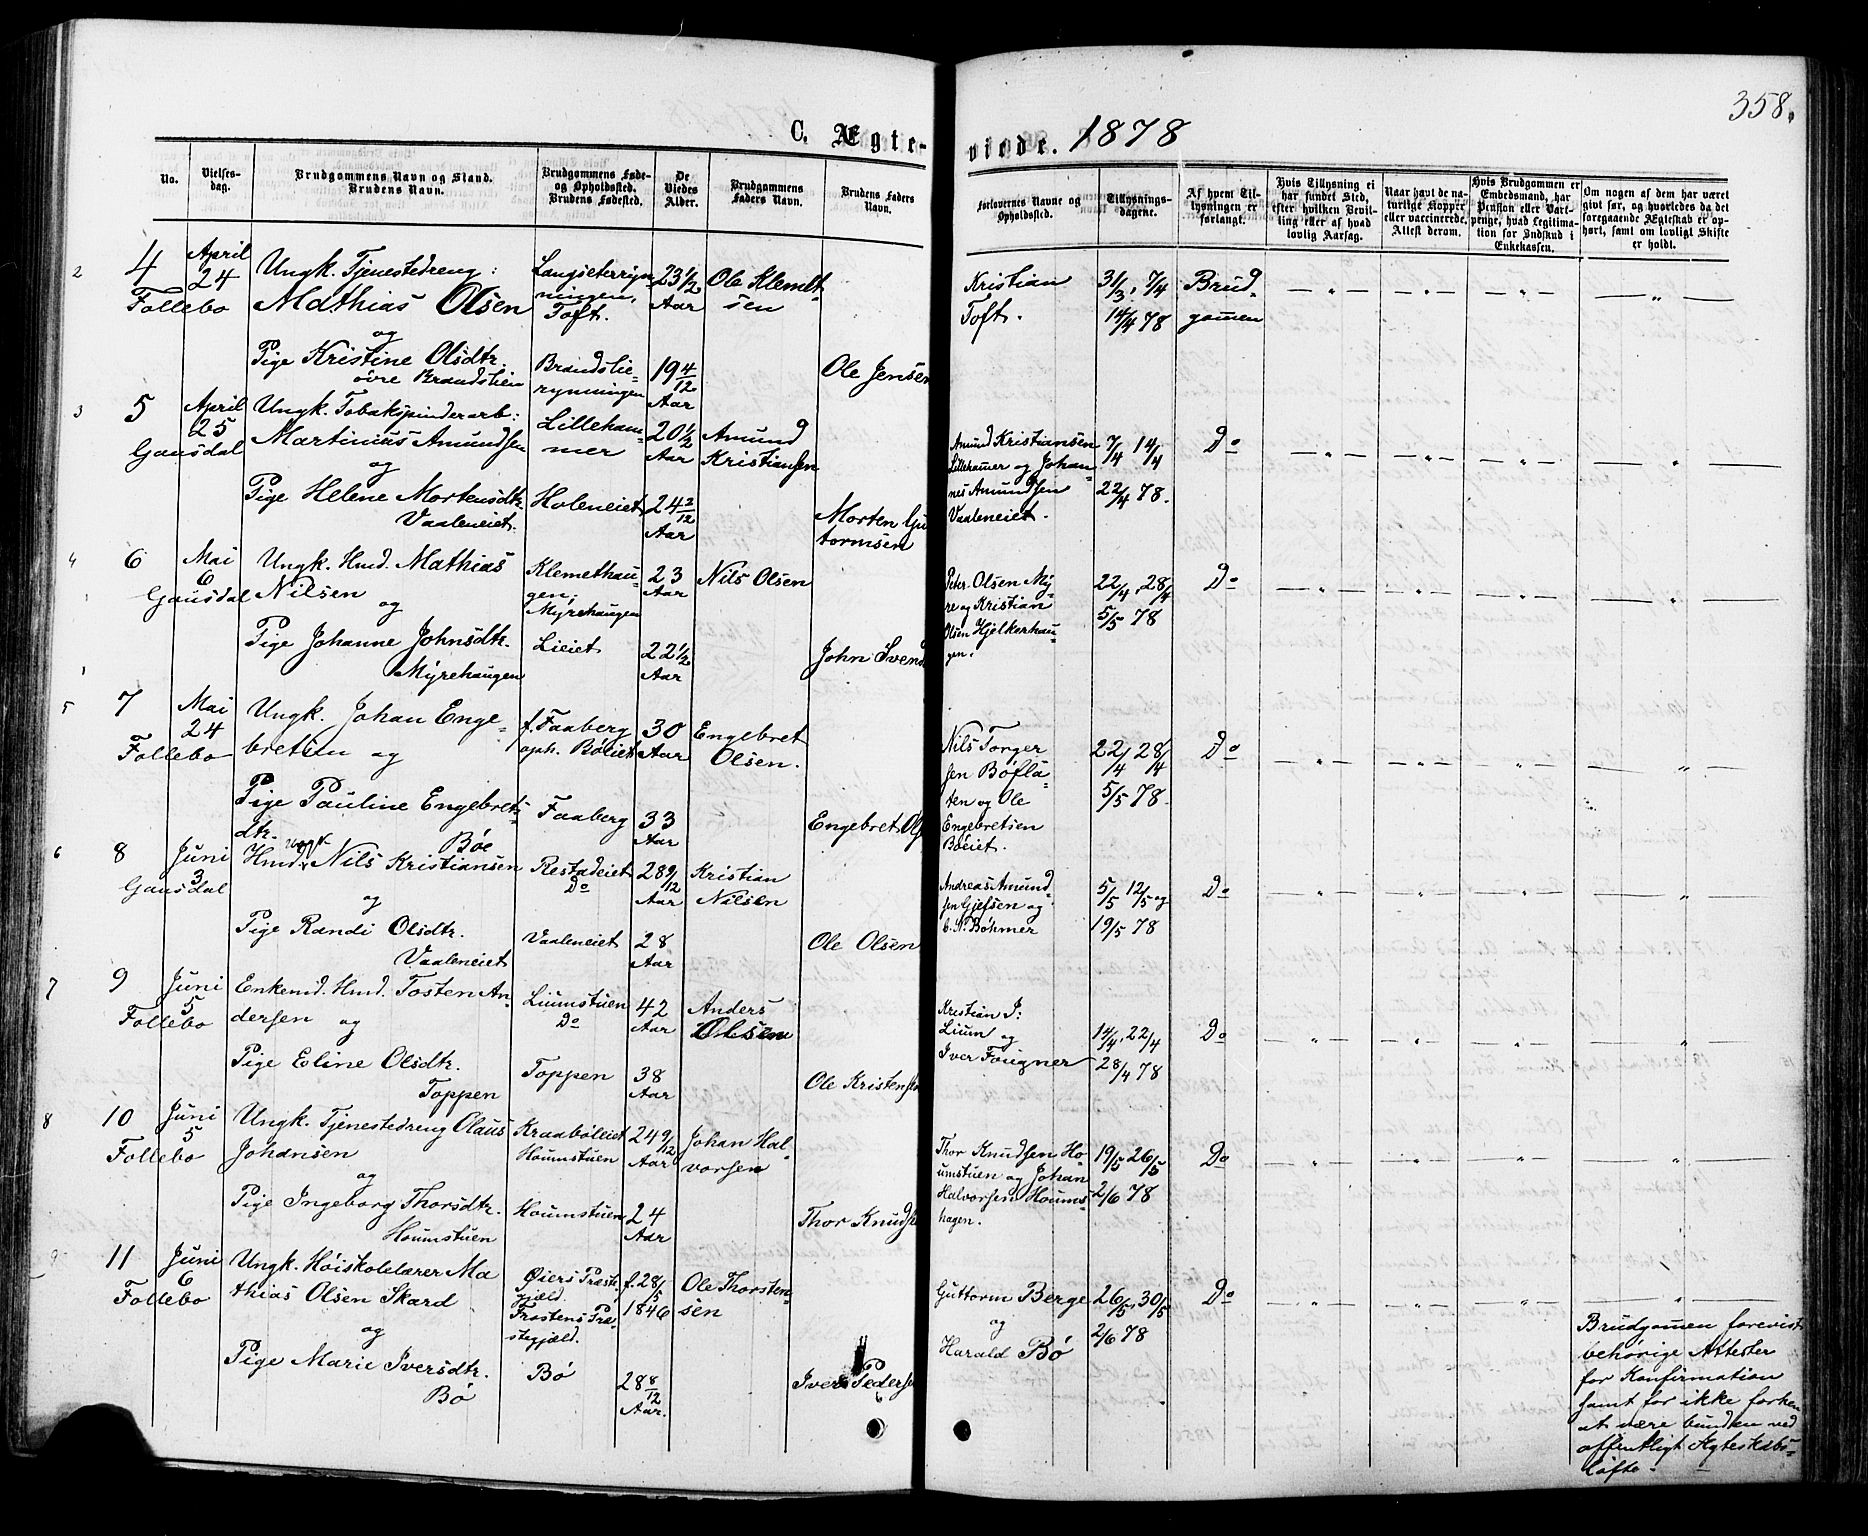 358.
C. Ægte-
viede. 1878
No.
Vielses-
dag.
Brudgommens Navn og Stand.
Brudens Navn.
Brudgommens Føde-
og Opholdssted.
Brudens Fødested.
De
Viedes
Alder.
Brudgommens
Faders Navn.
Brudens Faders
Navn.
Forlovernes Navne og
Opholdssted.
Tillysnings-
dagene.
Af hvem Til-
lysningen er
forlangt.
Hvis Tillysning ei
har fundet Sted,
efter hvilken Bevil-
ling eller af hvad
lovlig Aarsag.
Naar havt de na-
turlige Kopper
eller vaccinerede.
Attest derom.
Hvis Brudgommen er
Embedsmand, har
Pension eller Vart-
penge, hvad Legitima-
tion for Indskud i
Enkekassen.
Om nogen af dem har været
gift før, og hvorledes da det
foregaaende Ægteskab er op-
hørt, samt om lovligt Skifte
er holdt.
2
4
Follebo
April
24
Ungk. Tjenestedreng:
Mathias Olsen
og
Pige Kristine Olsdtr.
øvre Brandslien
Langseterryn-
ningen,
Toft.
Brandslie-
rynningen
23 1/2
Aar
19 4/12
Aar
Ole Klemet-
sen
Ole Jensen
Kristian
Toft.
31/3, 7/4
14/4 78
Brud-
gommen
3
5
Gausdal
April
25
Ungk. Tobakspinderarb:
Martinius Amundsen
og
Pige Helene Mortensdtr.
Vaaleneiet.
Lilleham-
mer
Holeneiet
20 1/2
Aar
24 2/12
Aar
Amund
Kristiansen
Morten Gu
tormsen
Amund Kristiansen
Lillehamer og Johan-
nes Amundsen
Vaaleneiet.
7/4 14/4
22/4 78.
Do
4
6
Gausdal
Mai
6
Ungk. Hmd. Mathias
Nilsen
og
Pige Johanne Johnsdtr.
Myrehaugen
Klemethau-
gen,
Myrehaugen
Lieiet
23
Aar
22 1/2
Aar
Nils Olsen
John Svend
Peter Olsen My-
re og Kristian
Olsen Hjelkerhau-
gen.
22/4, 28/4
5/5 78
Do
5
7
Follebo
Mai
24
Ungk. Johan Enge-
bretsen og
Pige Pauline Engebrets-
dtr.
Bøe
f. Faaberg
oph. Bøeiet
Faaberg
30
Aar
33
Aar
Engebret
Olsen.
Engebret Ols
Nils Torger
sen Bøfla-
ten og Ole
Engebretsen
Bøeiet.
22/4 28/4
5/5 78.
Do
6
8
Gausdal
Juni
3
Hmd. Ungk. Nils Kristiansen
og
Pige Randi Olsdtr.
Vaaleneiet
Restadeiet
Do
Vaaleneiet
28 9/12
Aar
28
Aar
Kristian
Nilsen
Ole Olsen
Andreas Amund-
sen Gjefsen og
C. N. Bøhmer
5/5 12/5 og
19/5 78
Do
7
9
Follebo
Juni
5
Enkemd. Hmd. Tosten An-
dersen og
Pige Eline Olsdtr.
Toppen
Liumstuen
Do
Toppen
42
Aar
38
Aar
Anders
Olsen
Ole Kristensen
Kristian J:
Lium og
Iver Fougner
14/4, 22/4
28/4 78
Do
8
10
Follebo
Juni
5
Ungk. Tjenestedreng Olaus
Johansen
og
Pige Ingeborg Thorsdtr.
Houmstuen
Kraabøleiet
Houmstuen
Houmstuen
24 9/12
Aar
24
Aar
Johan Hal-
vorsen
Thor Knudsen
Thor Knudsen Ho-
umstuen og Johan
Halvorsen Houms-
hagen.
19/5 26/5
2/6 78
Do
9
11
Follebo
Juni
6
Ungk. Høiskolelærer Ma
thias Olsen Skard
og
Pige Marie Iversdtr.
Bø
Øiers Præste-
gjæld.
Frostens Præ-
stegjæld.
Bø
f. 28/5
1846
28 8/12
Aar.
Ole Thorsten-
sen
Iver Pedersen
Guttorm Berge
og
Harald Bø
26/5, 30/5
2/6 78
Do
Brudgomen forevist
behørige Attester
for Konfirmation
samt for ikke forhen
at være bunden ved
offentligt Ægteskabs-
løfte.